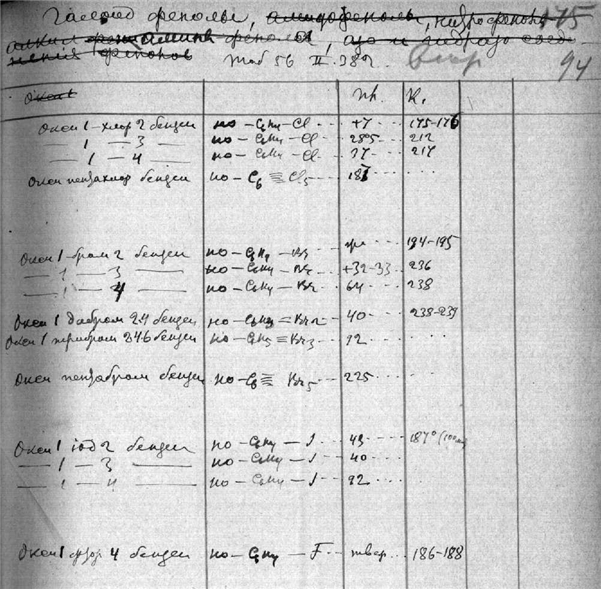 Галоид фенолы, амидофенолы, нитрофенолы 175
алкил фенолы, азо и гидразо соед
нения фенолов Таб 56 II. 38а. 94
Окси 1 пл. К.
Окси 1-хлор 2 бензен HO-C6H4-Cl +7 175-176
— 1 — 3 — HO-C6H4-Cl 28.5 212
— 1 — 4 — HO-C6H4-Cl 37 217
Окси пентахлор бензен HO-C6≡Cl5 187
Окси 1-бром 2 бензен HO-C6H4-Br 194-195
— 1 — 3 — HO-C6H4-Br +32-33 236
— 1 — 4 — HO-C6H4-Br 64 238
Окси 1 дибром 2.4 бензен HO-C6H3=Br2 40 238-239
Окси 1 трибром 246 бензен HO-C6H2≡Br3 92
Окси пентабром бензен HO-C6≡Br5 225
Окси 1 iод 2 бензен HO-C6H4-J 43 187°
— 1 — 3 — HO-C6H4-J 40
— 1 — 4 — HO-C6H4-J 92
Окси 1 фтор 4 бензен HO-C6H4-F твер. 186-188